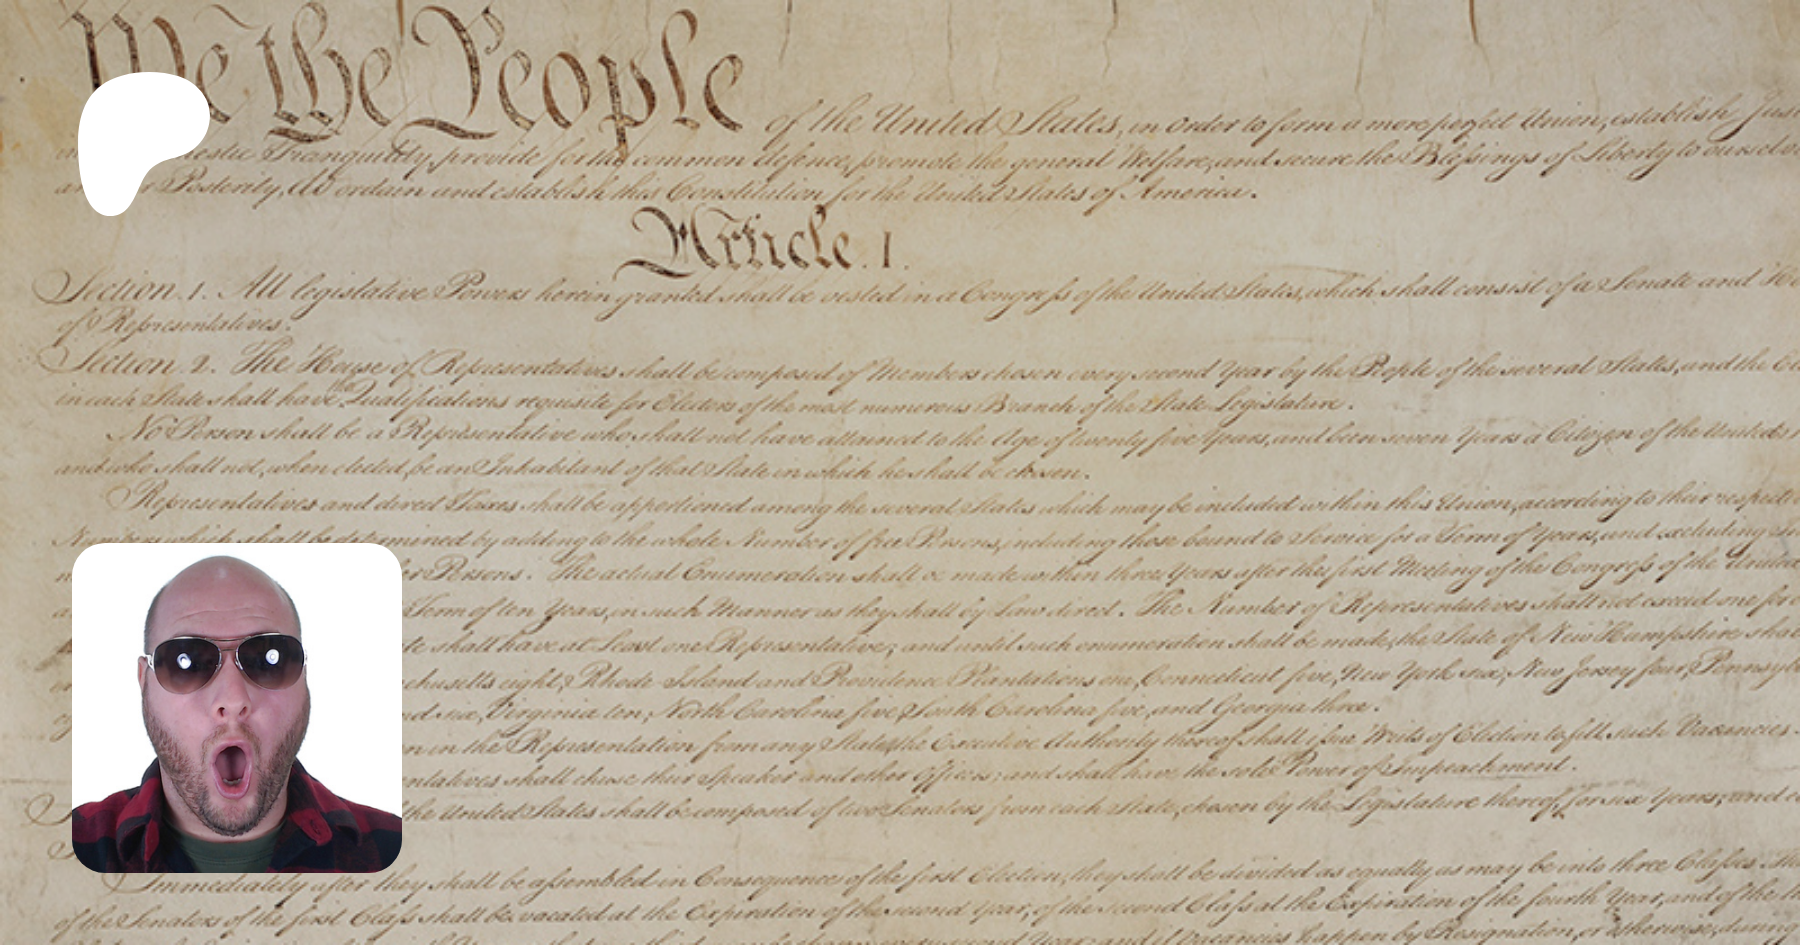 We the People of the United States, in Order to form a more perfect Union, establish Jus
in mestic Tranquility, provide for the common defence, promote the general Welfare, and secure the Blessings of Liberty to oursel
an r Posterity, do ordain and establish this Constitution for the United States of America.
Article. I.
Section. 1. All legislative Powers herein granted shall be vested in a Congress of the United States, which shall consist of a Senate and Ho
of Representatives.
Section. 2. The House of Representatives shall be composed of Members chosen every second Year by the People of the several States, and the
in each State shall have the Qualifications requisite for Electors of the most numerous Branch of the State Legislature.
No Person shall be a Representative who shall not have attained to the Age of twenty five Years, and been seven Years a Citizen of the United
and who shall not, when elected, be an Inhabitant of that State in which he shall be chosen.
Representatives and direct Taxes shall be apportioned among the several States which may be included within this Union, according to their respecti
Numbers, which shall be determined by adding to the whole Number of free Persons, including those bound to Service for a Term of Years, and excluding
er Persons. The actual Enumeration shall be made within three Years after the first Meeting of the Congress of the United
Term of ten Years, in such Manner as they shall by Law direct. The Number of Representatives shall not exceed one for
te shall have at Least one Representative; and until such enumeration shall be made, the State of New Hampshire shal
chusetts eight, Rhode Island and Providence Plantations one, Connecticut five, New York six, New Jersey four, Pennsyl
nd six, Virginia ten, North Carolina five, South Carolina five, and Georgia three.
n in the Representation from any State, the Executive Authority thereof shall issue Writs of Election to fill such Vacancies.
entatives shall chuse their Speaker and other Officers; and shall have the sole Power of Impeachment.
the United States shall be composed of two Senators from each State, chosen by the Legislature thereof, for six Years; and
Immediately after they shall be assembled in Consequence of the first Election, they shall be divided as equally as may be into three Classes.
of the Senators of the first Class shall be vacated at the Expiration of the second Year, of the second Class at the Expiration of the fourth Year, and of the
Year; and if Vacancies happen by Resignation, or otherwise, during